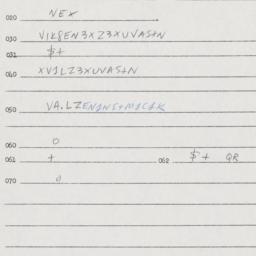 020 NEX
030 VIK8EN3XZ3XUVASTN
031 $+
040 XV1LZ3XUVASTN
050 VA.LZENANSTM1C1K
060 0
061 + 062 $+ QR
070 0